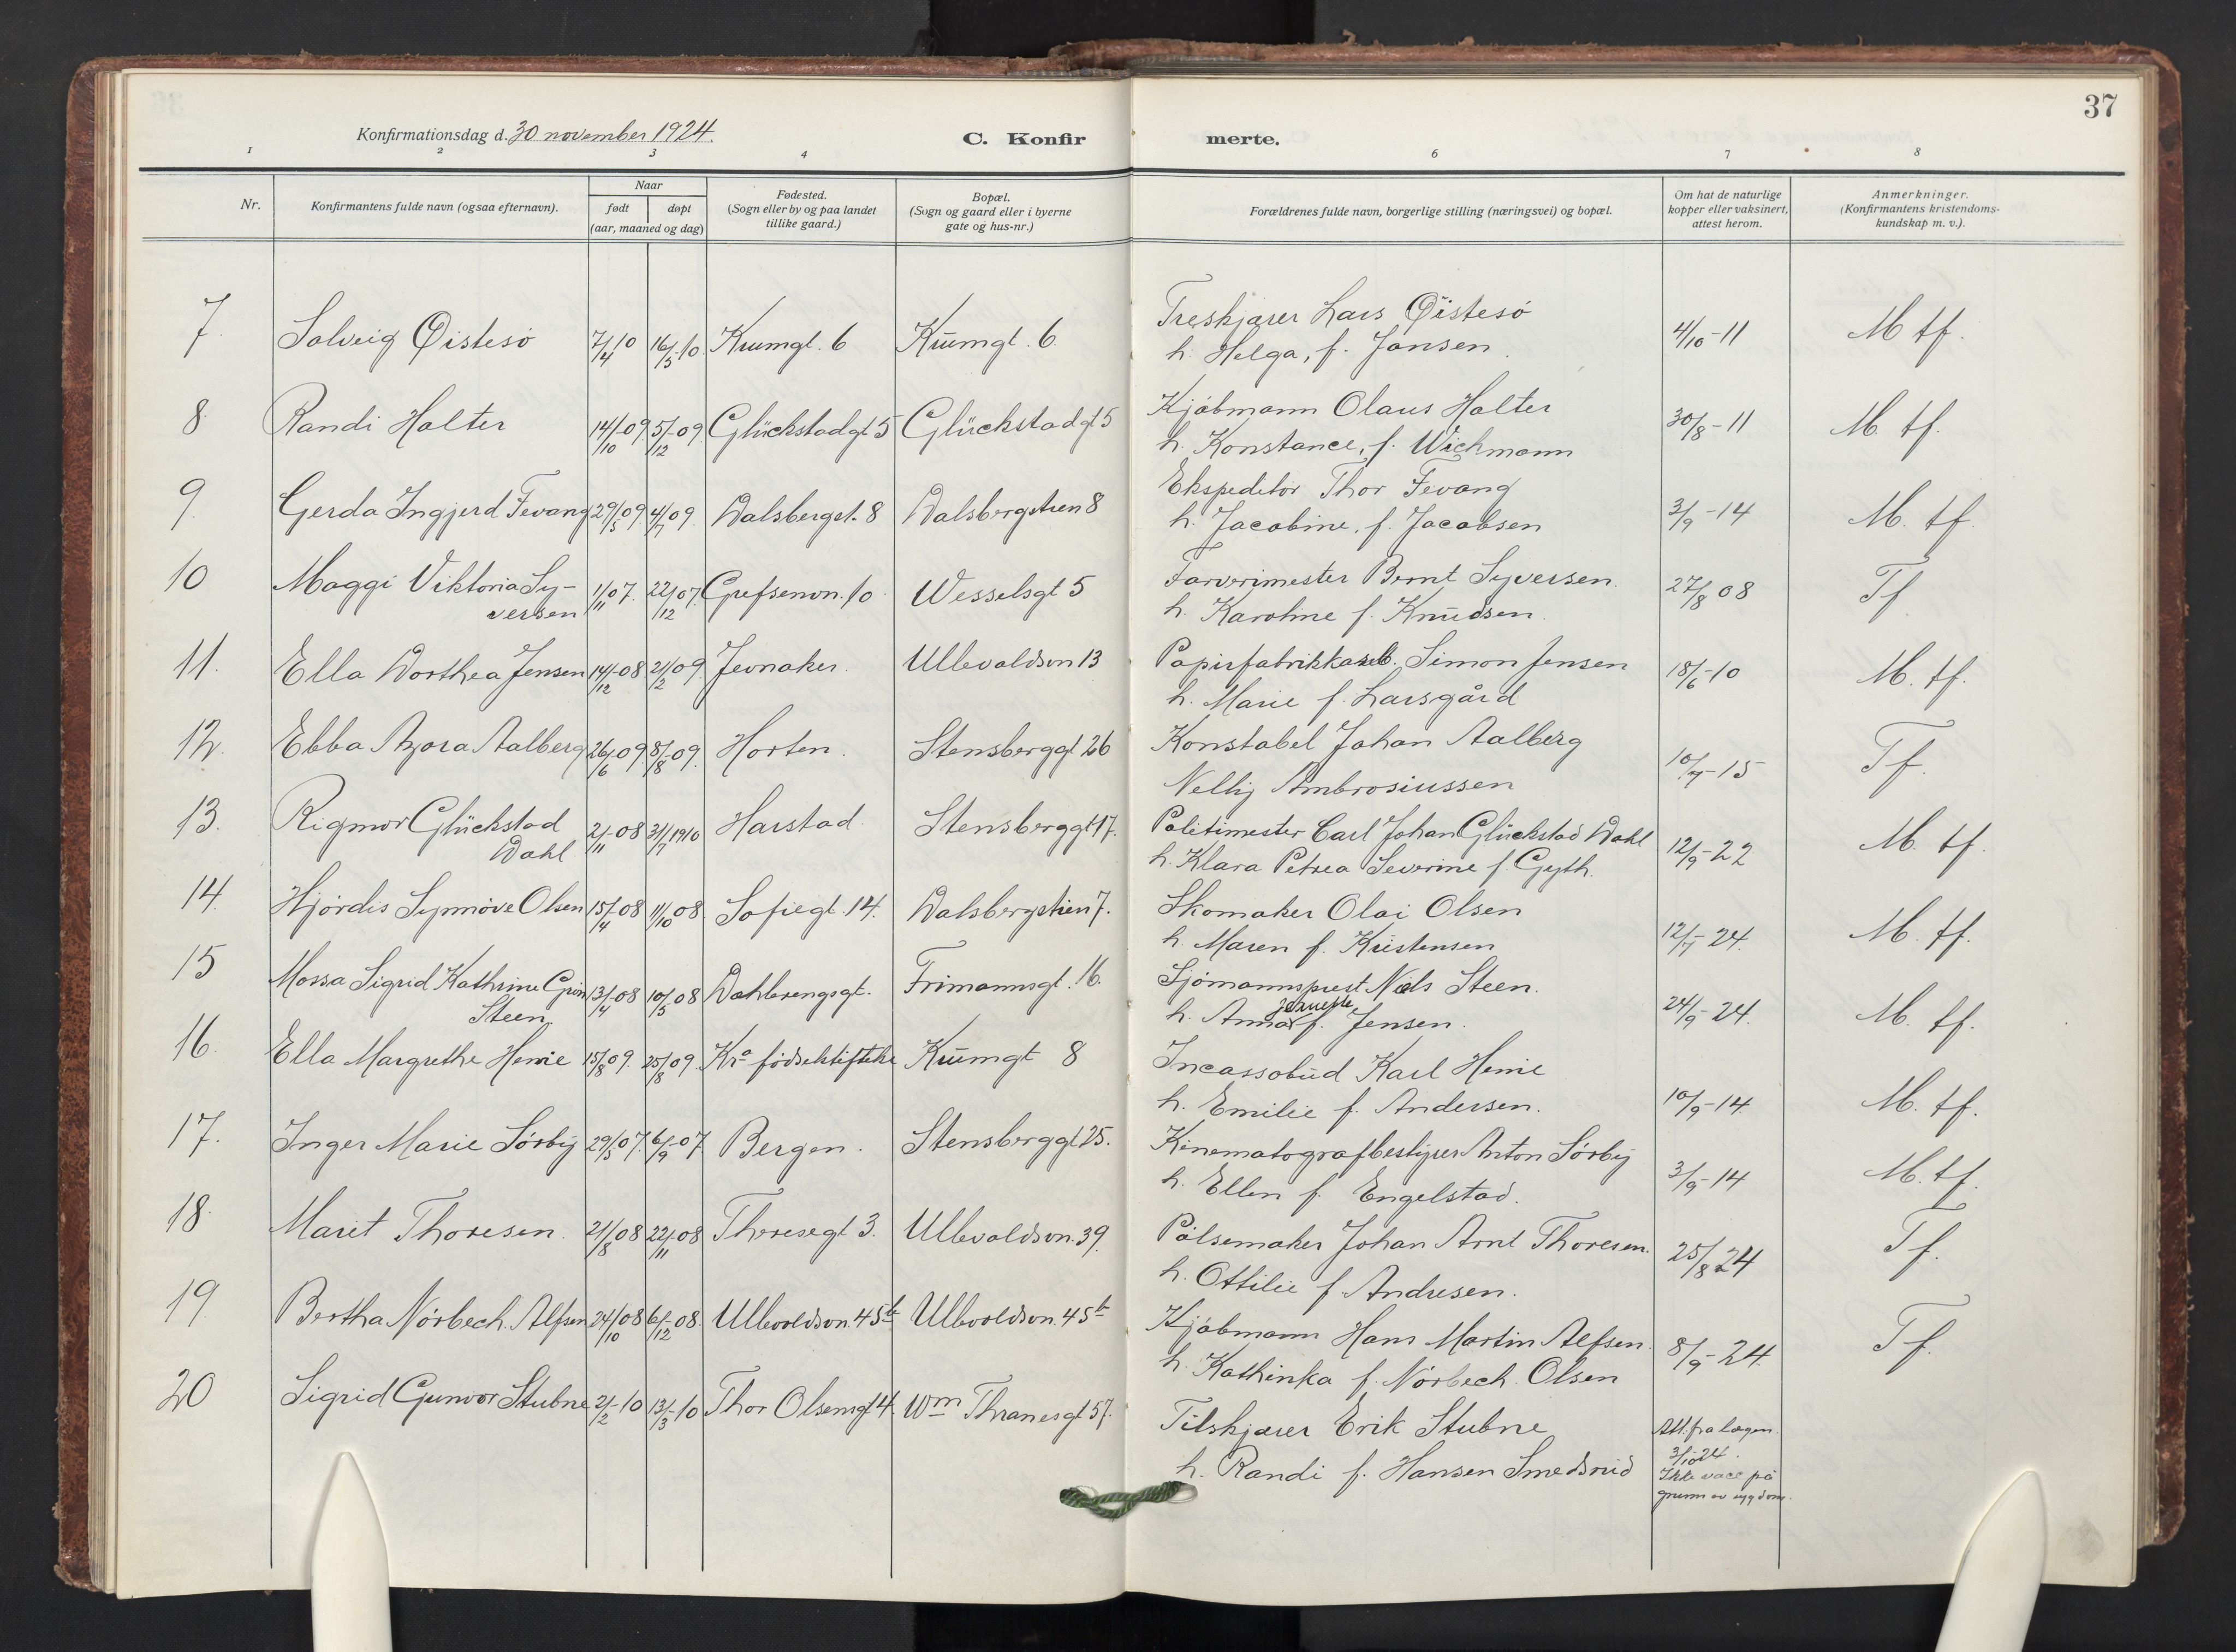 37
Konfirmationsdag d. 30 november 1924.
C. Konfir merte.
1 2 3 4 6 7 8
Nr.
Konfirmantens fulde navn (ogsaa efternavn).
Naar
født
døpt
(aar, maaned og dag)
Fødested.
(Sogn eller by og paa landet
tillike gaard.)
Bopæl.
(Sogn og gaard eller i byerne
gate og hus-nr.)
Forældrenes fulde navn, borgerlige stilling (næringsvei) og bopæl.
Om hat de naturlige
kopper eller vaksinert,
attest herom.
Anmerkninger.
(Konfirmantens kristendoms-
kundskap m. v.).
7. Solveig Øistesö 7/4 10 16/5-10 Krumgt. 6 Krumgt. 6 Treskjærer Lars Øistesö 4/10-11 M tf.
h. Helga, f. Jansen.
8. Randi Halter 14/10-09 5/12-09 Glückstadgt 5 Glückstadgt 5 Kjöbmann Olaus Halter 30/8-11 M. tf.
h. Konstance, f. Wichmann
9. Gerda Ingjerd Fevang 29/5 09 4/7 09. Dalsbergst. 8 Dalsbergstien 8 Ekspeditör Thor Fevang 3/9-14 M. tf.
h. Jacobine, f. Jacobsen
10 Maggi Viktoria Sy- 1/11 07. 22/12 07. Grefsenvn. 10 Wesselsgt 5 Farverimester Bernt Syversen. 27/8 08 Tf
versen h. Karoline f. Knudsen.
11. Ella Dorthea Jensen 14/12-08 21/2 09. Jevnaker. Ullevaldsvn 13 Papirfabrikkarb. Simon Jensen 18/6-10 M. tf.
h. Marie f. Larsgård
12. Ebba Azora Aalberg 26/6-09 8/8-09. Horten. Stensberggt 26 Konstabel Johan Aalberg 10/7-15 Tf.
Nelly Ambrosiussen
13. Rigmor Glückstad 2/11-08 31/7 1910 Harstad Stensberggt 17. Politimester Carl Johan Glückstad Dahl 12/9-22 M. tf.
Dahl h. Klara Petrea Severine f. Gyth.
14. Hjördis Synnöve Olsen 15/4-08 11/10 08. Sofiegt. 14. Dalsbergstien 7. Skomaker Olai Olsen 12/7-24. M. tf.
h. Maren f. Kristensen
15 Mossa Sigrid Kathrine Grön 13/4-08 10/5 08 Dahlerengsgt. Frimannsgt. 16. Sjömannsprest Niels Steen. 24/9-24. M. tf.
Steen h. Anna Jeanette f. Jensen.
16. Ella Margrethe Henie 15/8 09. 25/8 09. Kra födselstiftelse Krumgt 8 Incassobud Karl Henie 10/9-14 M. tf.
h. Emilie f. Andersen.
17. Inger Marie Sörby 29/5 07. 6/9-07 Bergen. Stensberggt 25. Kinematografbestyrer Anton Sörby 3/9-14 M. tf.
h. Ellen f. Engelstad.
18. Marit Thoresen. 21/8 08 22/11-08 Theresegt 3. Ullevaldsvn. 39. Pölsemaker Johan Arnt Thoresen. 25/8 24 Tf.
h. Ottilie f Andresen.
19. Bertha Nörbech Alfsen 24/10 08 6/12-08. Ullevoldsvn. 45b Ullevoldsvn. 45b Kjöbmann Hans Martin Alfsen. 8/9-24. Tf.
h. Kathinka f. Nörbech Olsen
20 Sigrid Gunvor Stubne 2/2-10 13/3-10 Thor Olsensgt 4. Wm Thranesgt 57. Filskjærer Erik Stubne Att. fra lægen
h. Randi f. Hansen Smedsrud 3/10 24.
Ikke vacc på
grunn av sygdom.